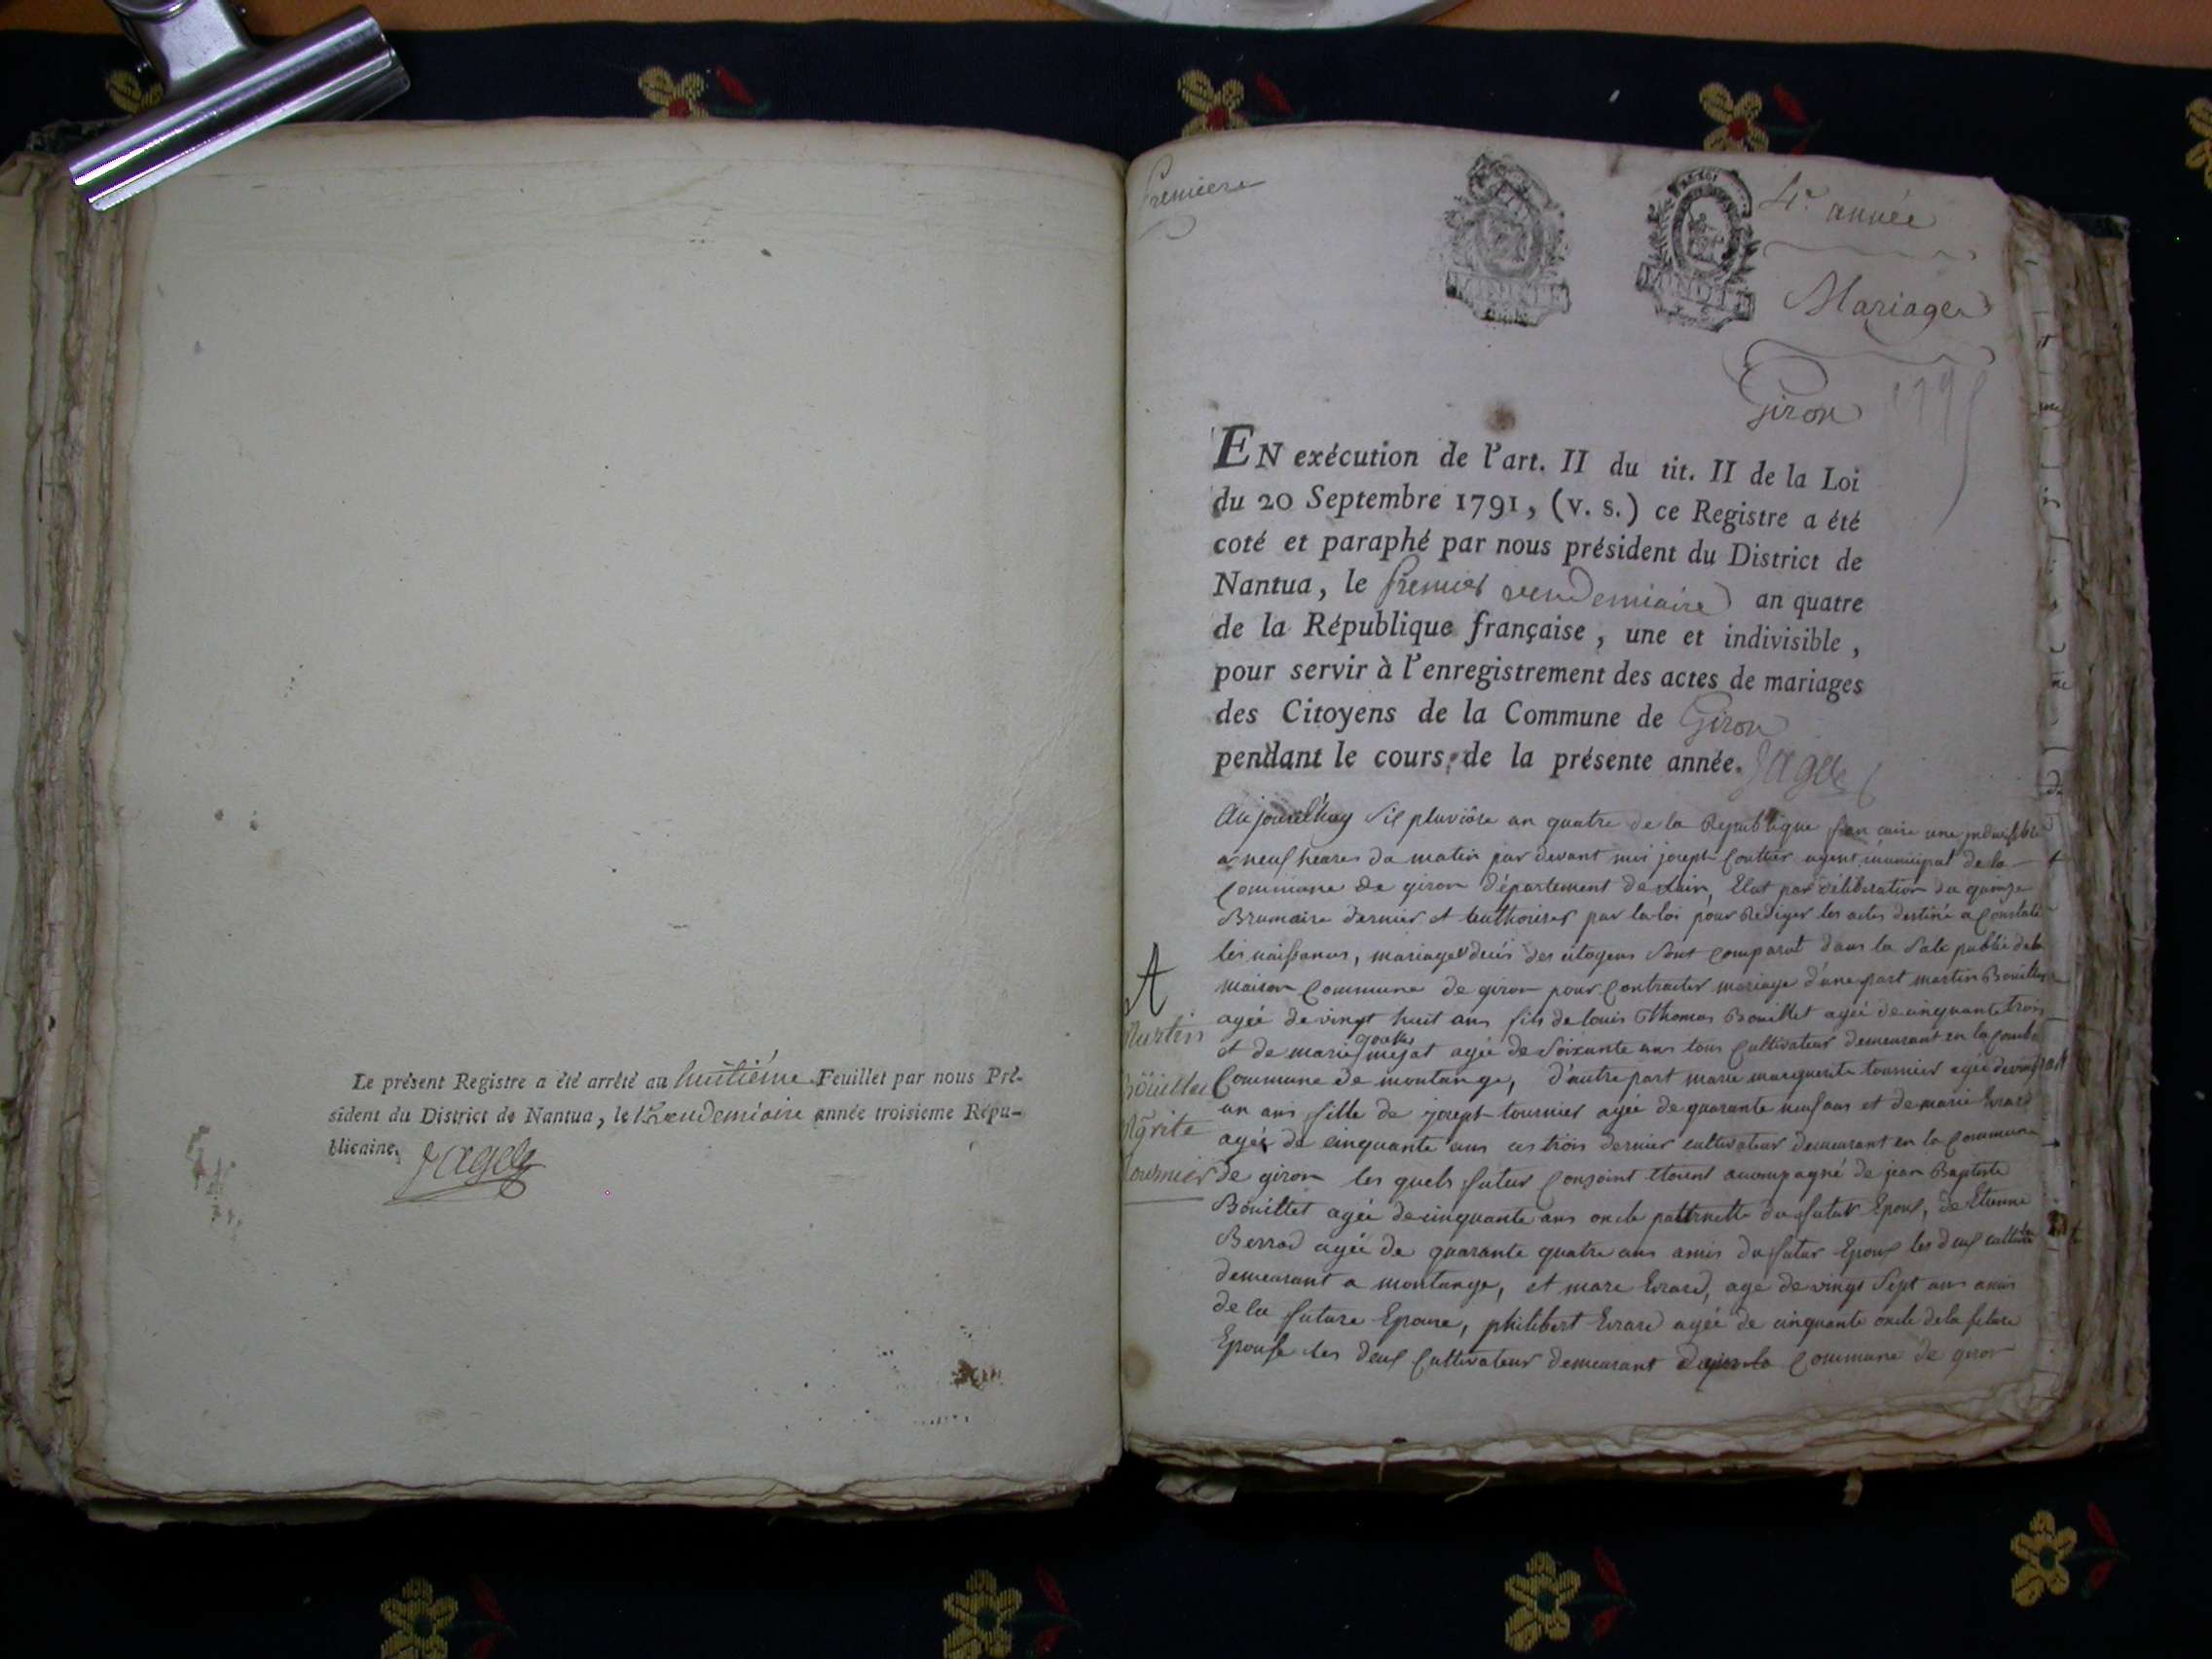 Le présent Registre a été arrêté au huitiéme Feuillet par nous Pré-
sident du District de Nantua, le 1er vendemiaire année troisieme Répu-
blicaine.
Jagot
Premiere
4e année
Mariages
Giron
1795
EN exécution de l'art. II du tit. II de la Loi
du 20 Septembre 1791, (v. s.) ce Registre a été
coté et paraphé par nous président du District de
Nantua, le Premier vendemiaire an quatre
de la République française, une et indivisible,
pour servir à l'enregistrement des actes de mariages
des Citoyens de la Commune de Giron
pendant le cours de la présente année. Jagot
Aujourd'huy pluviôse an quatre de la Republique francaise une indivisible
a neuf heures du matin par devant moi joseph Couttier agent municipal de la
Commune de giron département de lain, Elut par déliberation du quinze
Brumaire dernier et authoriser par la loi pour Rediger les actes destiné a Constaté
les naissances, mariage decés des citoyens sont comparut dans la sale public de la
maison Commune de giron pour Contracter mariage d'une part martin Bouillet
agéé de vingt huit ans fils de louis Thomas Bouillet agéé de cinquante trois
et de marie mejat agée de soixante ans tous Cultivateur demeurant en la Combe
Commune de montange, d'autre part marie marguerite tournier agée de vingt
un ans fille de josept tournier agéé de quarante neuf ans et de marie Evrard
agéé de cinquante ans ces trois dernier cultivateur demeurant en la Commune
de giron les quels futur Conjoint etoient accompagné de jean Baptiste
Bouillet agéé de cinquante ans oncle patternelle du futur Epoux, de Etienne
Berrod agéé de quarante quatre ans amis du futur Epoux les deux cultivateur
demeurant a montange, et marc Evrard, age de vingt sept ans amis
de la future Epouse, philibert Evrard agéé de cinquante oncle de la future
Epouse les deux Cultivateur demeurant Commune de giron
A
Martin
Boüillet
Mgrite
tournier